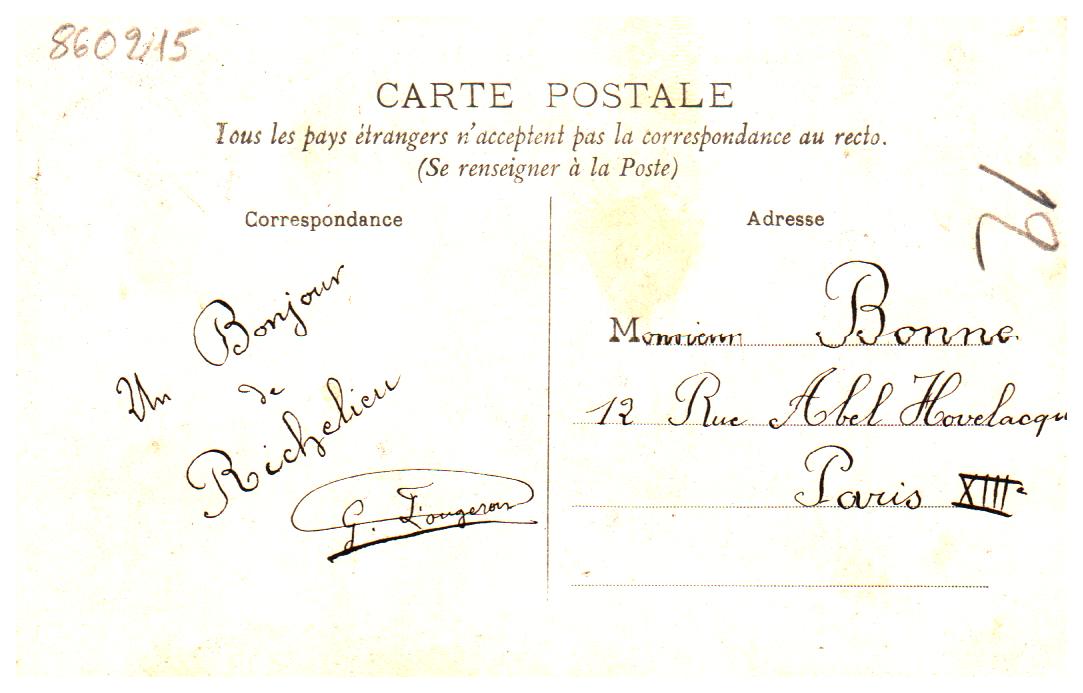 860215
CARTE POSTALE
Tous les pays étrangers n'acceptent pas la correspondance au recto.
(Se renseigner à la Poste)
12
Correspondance
Un Bonjour
de
Richelieu
G. Fougeron
Adresse
Monsieur Bonne.
12 Rue Abel Hovelacqu
Paris XIIIe